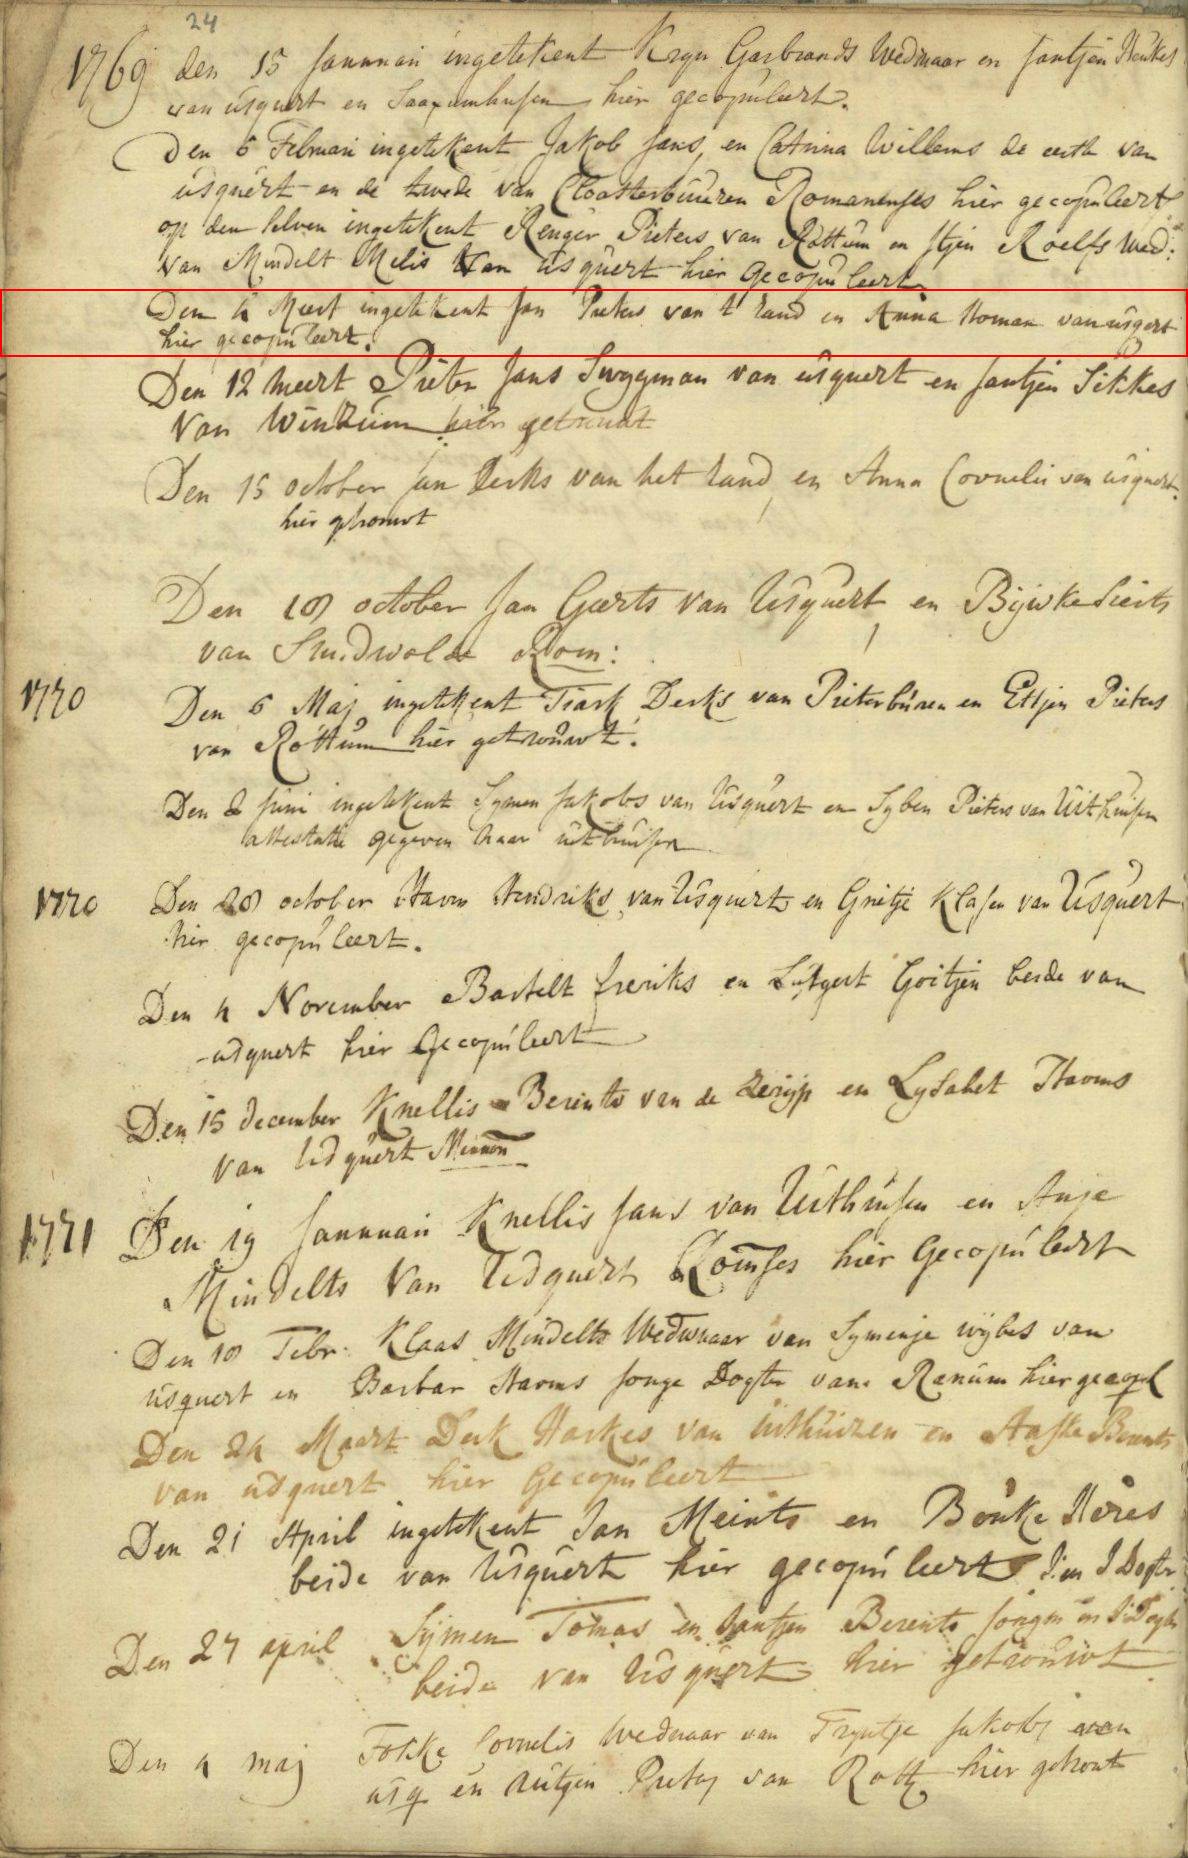 24
1769 den 15 Jannuari ingetekent Kryn Garbrands Wedwaar en Jantjen Heukes
van usquert en Saaxumhusen hier gecopuleert.
Den 6 Februari ingetekent Jakob Jans, en Catrina Willems de eerste van
usquert en de twede van Cloosterbuuren Romanenses hier gecopuleert
op den selven ingetekent Renger Pieters van Rottum en Stjin Roelfs Wed:
van Mindelt Melis van usquert hier gecopuleert
Den 4 Meert ingetekent Jan Pieters van t zand en Anna Homan van usqert
hier gecopuleert.
Den 12 meert Pieter Jans Swygman van usquert en Jantjen Sikkes
Van Winzum hier getruudt
Den 15 october Jan Derks van het zand, en Anna Cornelis van usquert.
hier getrouwt
Den 18 october Jan Geerts van Usquert, en Bijwke Sierts
van Suidwolde Rom:
1770 Den 6 Maj ingetekent Tiark Derks van Pieterburen en Ettjen Pieters
van Rottum hier getrouwt.
Den 2 Juni ingetekent Symen Jakobs van Usquert en Syben Pieters van Uithuisen
attestatie gegeven naar uithuisen
1770 Den 28 october Harm Hendriks van Usquert en Grietje Klasen van Usquert
hier gecopuleert.
Den 4 November Bartelt freriks en Lutgert Goitjen beide van
usquert hier Gecopuleert
Den 15 december Knellis Berents van de zerijp en Lysabet Harms
van Usquert Mennon
1771 Den 19 Jannuari Knellis Jans van Uithuisen en Anje
Mindelts Van Usquert Romses hier Gecopuleert
Den 18 Febr. Klaas Mindelts Wedwaar van Symenje wybes van
usquert en Barbar Harms Jonge Dogter van Ranum hier gecopul
Den 24 Maart Derk Harkes van Uithuizen en Aafke Berents
van usquert hier Gecopuleert
Den 21 April ingetekent Jan Meints en Bouke Heres
beide van Usquert hier gecopuleert J:m J Dogter
Den 27 april Sijmen Tomas en Jantjen Berents Jongm en J:Dogter
beide van Usquert hier getrouwt
Den 4 maj Fokke Cornelis Wedwaar van Tryntje Jakobs van
usq en Jutjen Pieters van Rott hier getrout